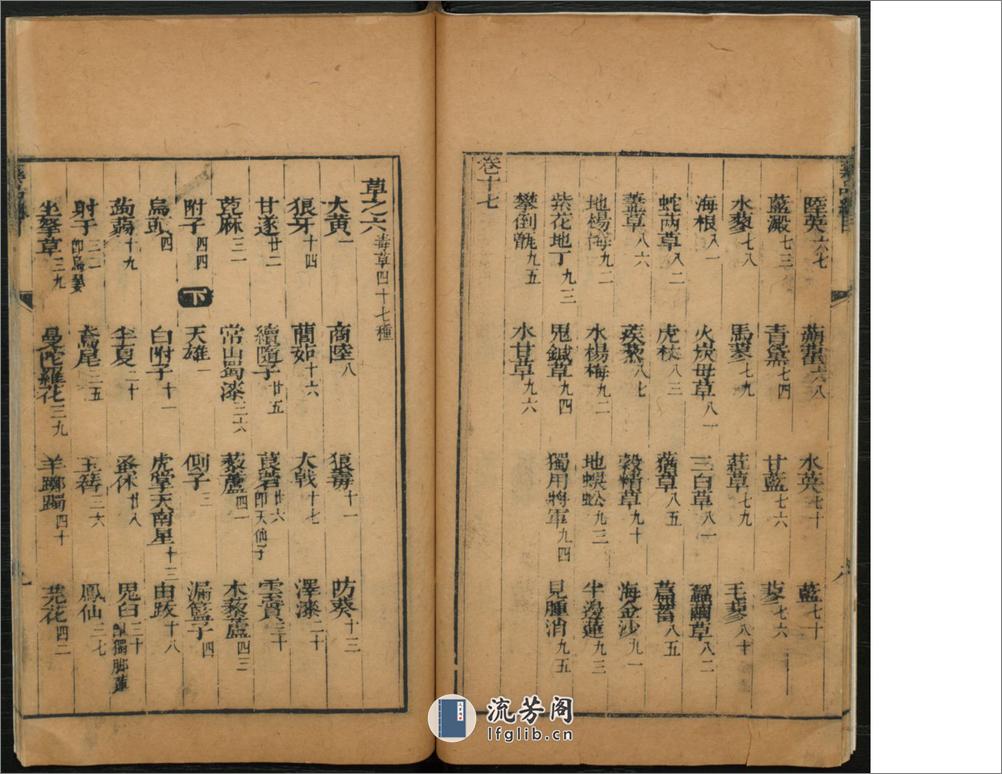 陸英六七 蒴藋六八 水英七十 藍七十
藍澱七三 青黛七四 甘藍七六 蓼七六
水蓼七八 馬蓼七九 葒草七九 毛蓼八十
海根八一 火炭母草八一 三白草八一 蠶繭草八二
蛇䒽草八二 虎杖八三 蕕草八五 萹蓄八五
藎草八六 蒺藜八七 穀精草九十 海金沙九一
地楊梅九二 水楊梅九二 地蜈蚣九三 半邊蓮九三
紫花地丁九三 鬼鍼草九四 獨用將軍九四 見腫消九五
攀倒甑九五 水甘草九六
卷十七
草之六毒草四十七種
大黃一 商陸八 狼毒十一 防葵十三
狼牙十四 䕡茹十六 大戟十七 澤漆二十
甘遂廿二 續隨子廿五 莨菪廿六即天仙子 雲實三十
蓖麻三一 常山蜀漆三六 藜蘆四一 木藜蘆四三
附子四四 下 天雄一 側子三 漏籃子四
烏頭四 白附子十一 虎掌天南星十三 由跋十八
蒟蒻十九 半夏二十 蚤休廿八 鬼臼三十即獨脚蓮
射子三二即烏翣 鳶尾三五 玉簪三六 鳳仙三七
坐拏草三九 曼陀羅花三九 羊躑躅四十 芫花四二
流芳阁
lfglib.cn